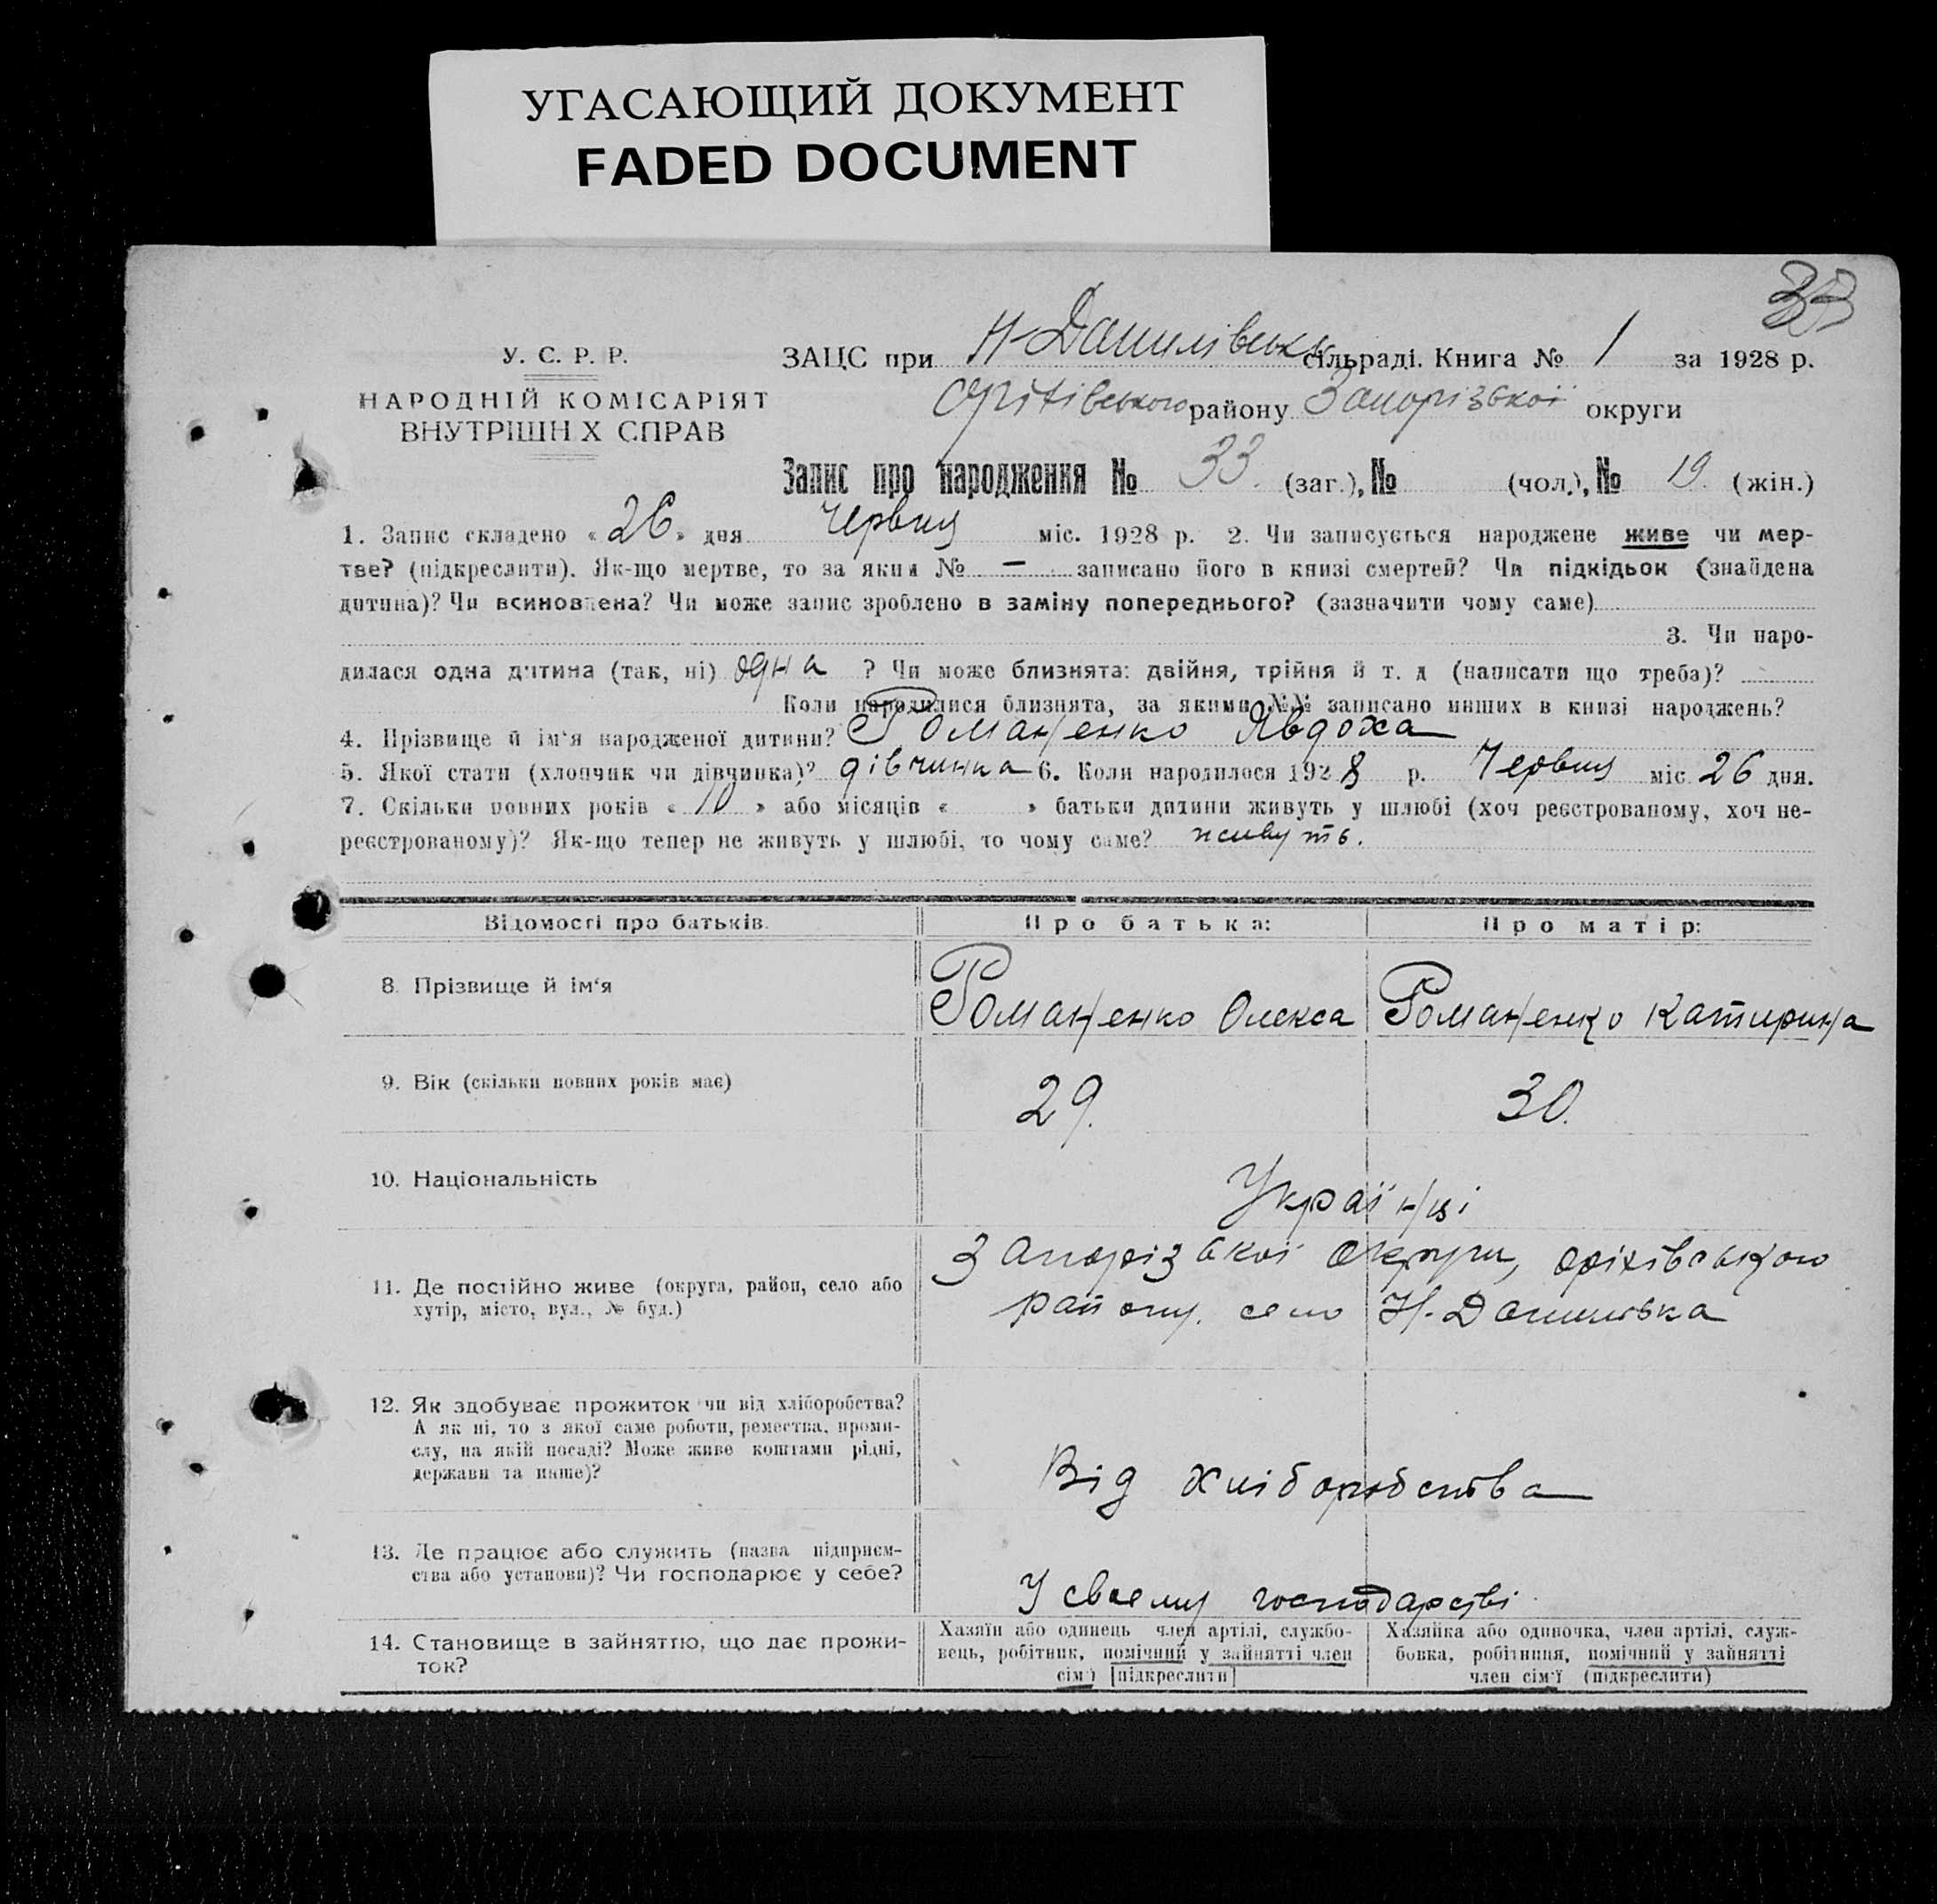 УГАСАЮЩИЙ ДОКУМЕНТ
FADED DOCUMENT
33
У. С. Р. Р.
НАРОДНІЙ КОМІСАРІЯТ
ВНУТРІШН Х СПРАВ
ЗАЦС при Н-Данилівськ сільраді. Книга № 1 за 1928 р.
Оріхівського району Запорізької округи
Запис про народження № 33. (заг.), № (чол.), № 19. (жін.)
1. Запис складено « 26 » дня червня міс. 1928 р. 2. Чи записується народжене живе чи мер-
тве? (підкреслити). Як-що мертве, то за яким № — записано його в книзі смертей? Чи підкідьок (знайдена
дитина)? Чи всиновлена? Чи може запис зроблено в заміну попереднього? (зазначити чому саме)
3. Чи наро-
дилася одна дитина (так, ні) одна ? Чи може близнята: двійня, трійня й т. д (написати що треба)?
Коли народилися близнята, за якими №№ записано инших в книзі народжень?
4. Прізвище й ім'я народженої дитини? Романенко Явдоха
5. Якої стати (хлопчик чи дівчинка)? дівчинка 6. Коли народилося 1928 р. Червня міс. 26 дня.
7. Скільки повних років « 10 » або місяців « » батьки дитини живуть у шлюбі (хоч реєстрованому, хоч не-
реєстрованому)? Як-що тепер не живуть у шлюбі, то чому саме? живуть.
Відомості про батьків. Про батька: Про матір:
8. Прізвище й ім'я Романенко Олекса Романенко Катирина
9. Вік (скільки повних років має) 29. 30.
10. Національність Українці
11. Де постійно живе (округа, район, село або
хутір, місто, вул., № буд.)
Запорізькоі округи, оріхівського
району. село Н-Данилівка
12. Як здобуває прожиток чи від хліборобства?
А як ні, то з якої саме роботи, ремества, проми-
слу, на якій посаді? Може живе коштами рідні,
держави та инше)?
Від хліборобства
13. Де працює або служить (назва підприєм-
ства або установи)? Чи господарює у себе?
У своему господарстві
14. Становище в зайняттю, що дає прожи-
ток?
Хазяїн або одинець член артілі, службо-
вець, робітник, помічний у зайнятті член
сім'ї [підкреслити]
Хазяйка або одиночка, член артілі, служ-
бовка, робітниця, помічний у зайнятті
член сім'ї (підкреслити)